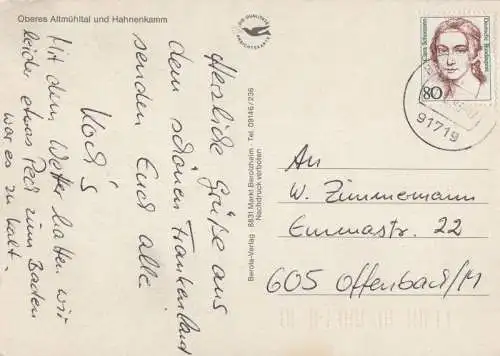 Oberes Altmühltal und Hahnenkamm
DIE QUALITÄTS
ANSICHTSKARTE
Herzliche Grüße aus
dem schönen Frankenland
senden Euch alle
Koch's
Mit dem Wetter hatten wir
leider etwas Pech zum Baden
war es zu kalt.
Berota-Verlag 8831 Markt Berolzheim · Tel. 09146/236
Nachdruck verboten
Clara Schumann
Deutsche Bundespost
80
91719
An
W. Zimmermann
Emmastr. 22
605 Offenbach/M